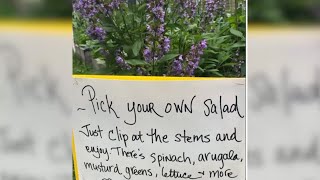 ~ Pick your own Salad
Just clip at the stems and
enjoy There's spinach, arugala,
musturd greens, lettuce + more